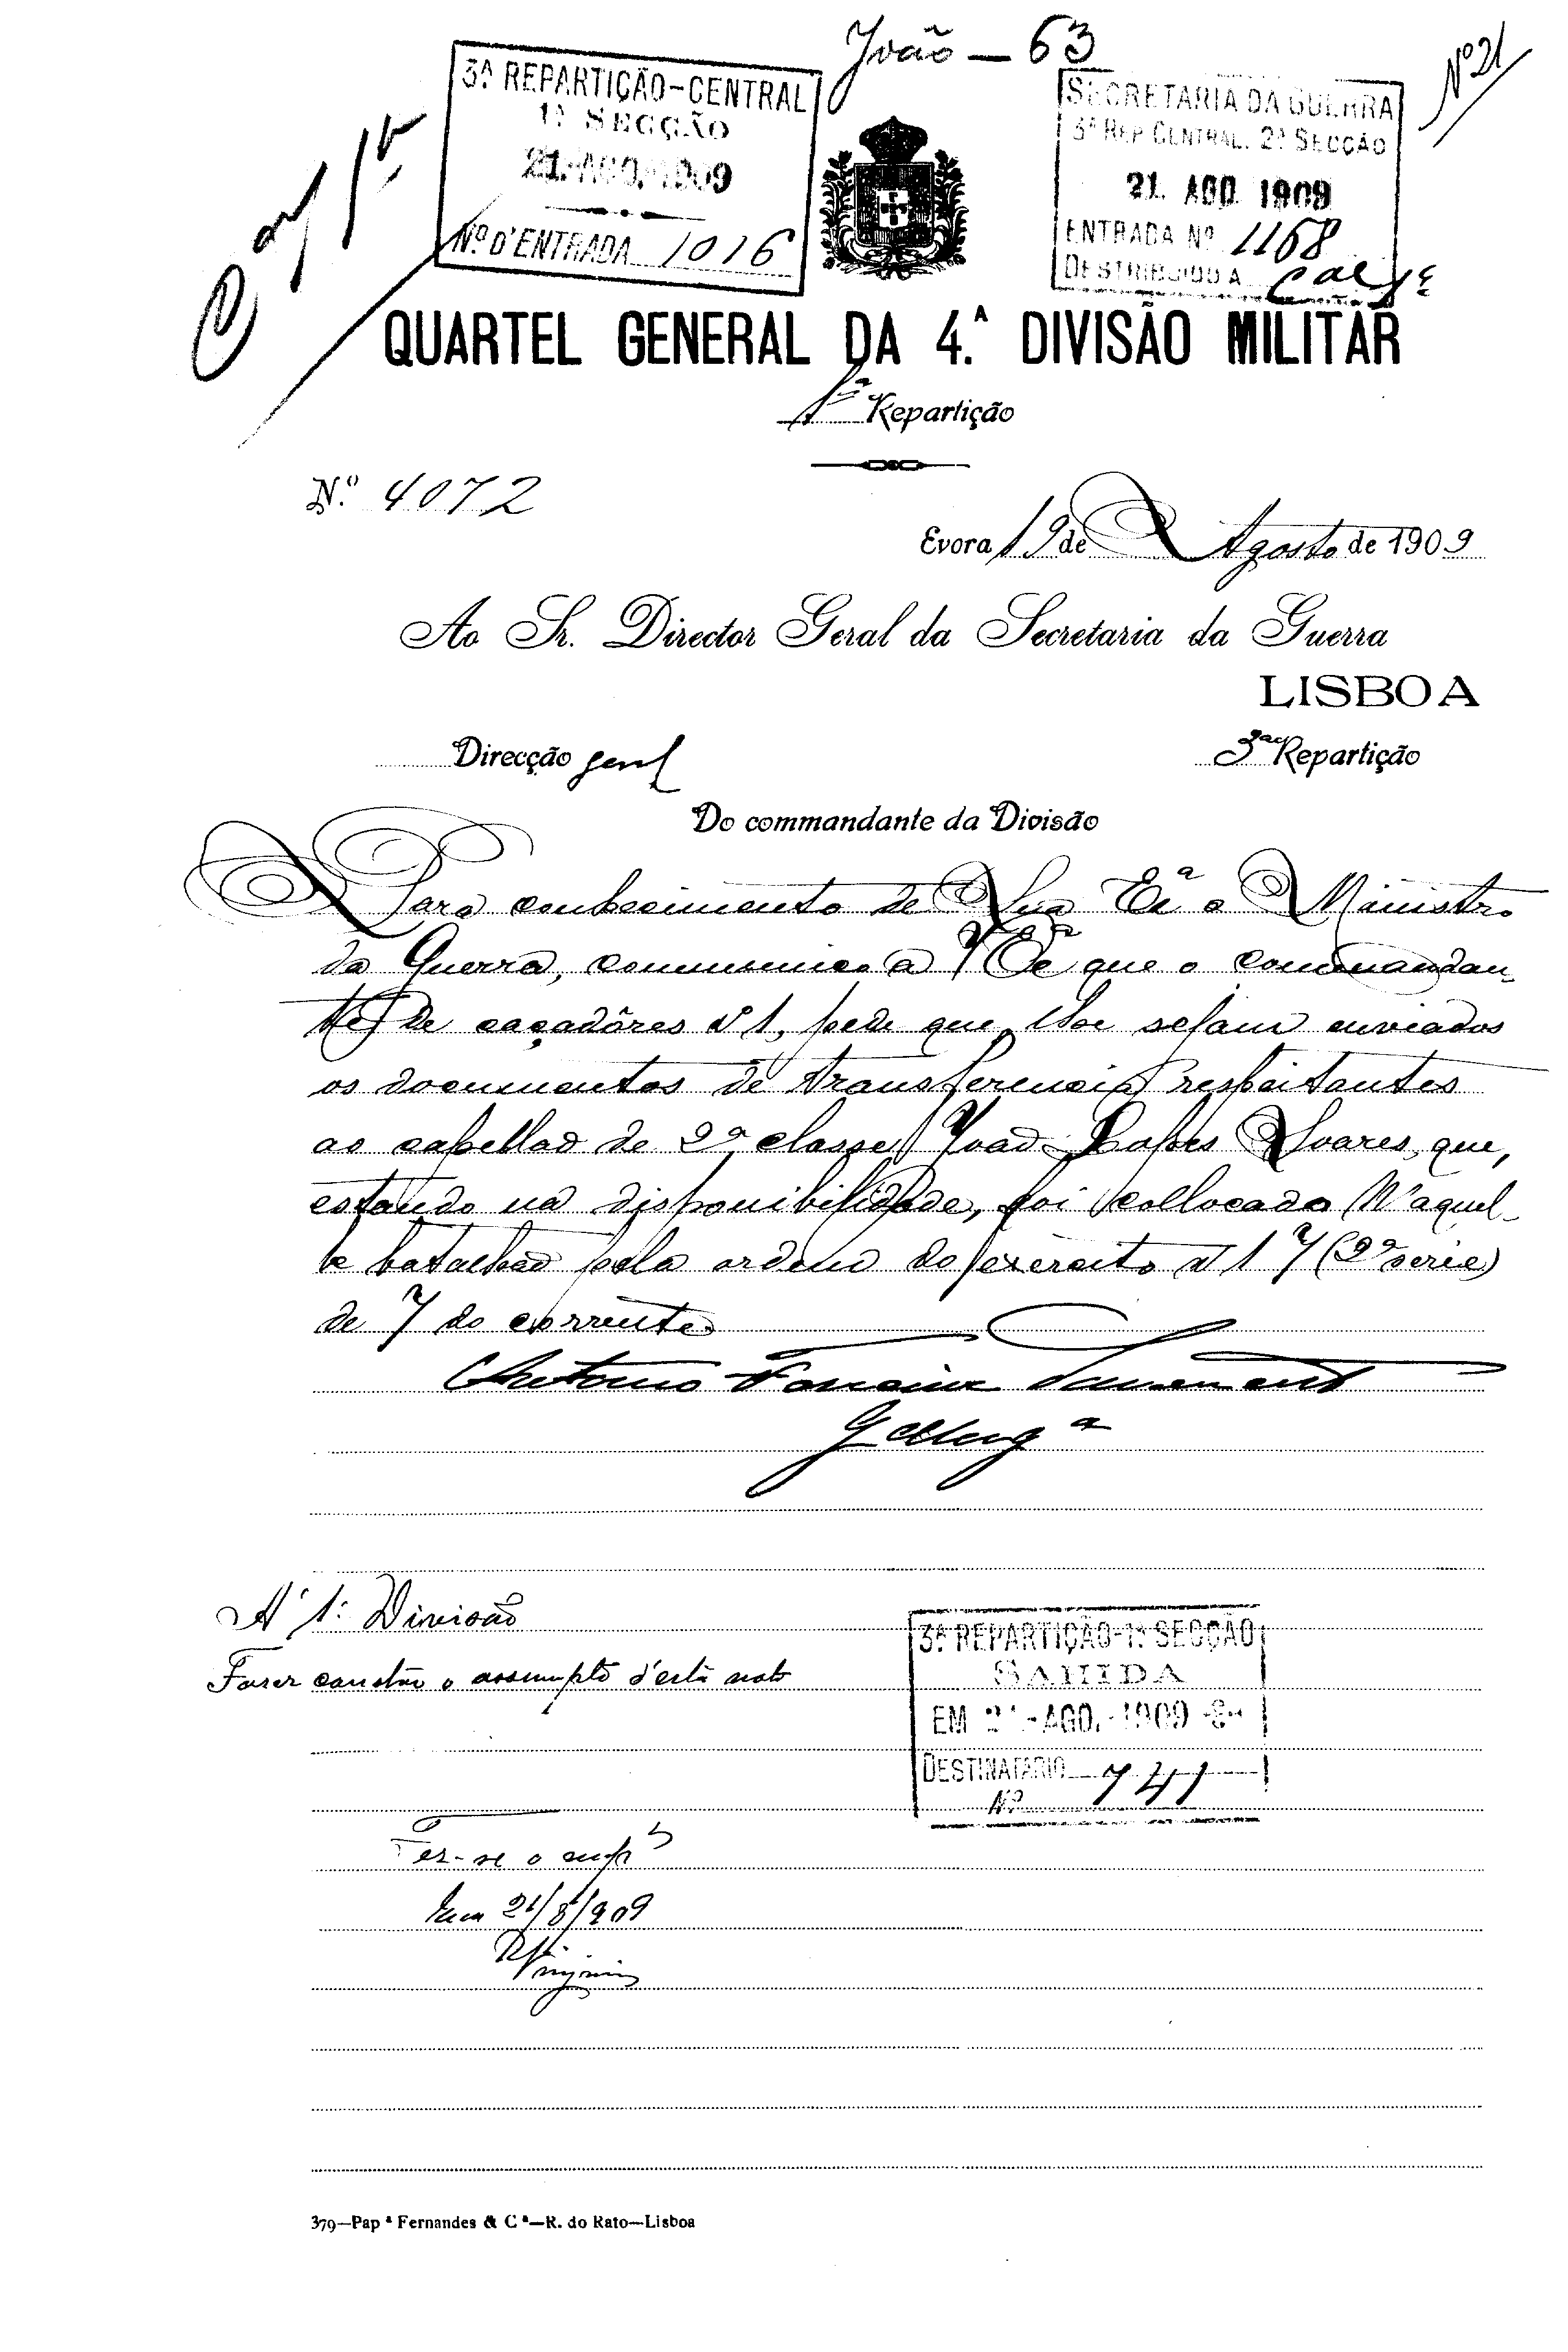 João — 63
Nº 21
3ª REPARTIÇÃO-CENTRAL
1ª SECÇÃO
21. AGO. 1909
Nº D'ENTRADA 1016
SECRETARIA DA GUERRA
3ª REP. CENTRAL. 2ª SECÇÃO
21. AGO. 1909
ENTRADA Nº 1168
DESTRIBUIDO A
QUARTEL GENERAL DA 4.ª DIVISÃO MILITAR
1ª Repartição
N.º 4072
Evora 19 de Agosto de 1909
Ao Sr. Director Geral da Secretaria da Guerra
LISBOA
Direcção geral
3ª Repartição
Do commandante da Divisão
Para conhecimento de Sua Exª o Ministro
da Guerra, communico a V Exª que o commandan-
te de caçadôres nº 1, pede que lhe sejam enviados
os documentos de transferencia respeitantes
ao capellão de 2ª classe João Lopes Soares, que,
estando na disponibilidade, foi collocado n'aquel-
le batalhão pela ordem do exercito nº 17 (2ª serie)
de 7 do corrente
Antonio
G
A' 1ª Divisão
Fazer constar o assumpto d'esta nota
3ª REPARTIÇÃO-1ª SECÇÃO
SAHIDA
EM 21-AGO.-1909
DESTINATARIO
Nº 741
Em 21/8/909
379—Pap.ª Fernandes & C.ª—R. do Rato—Lisboa